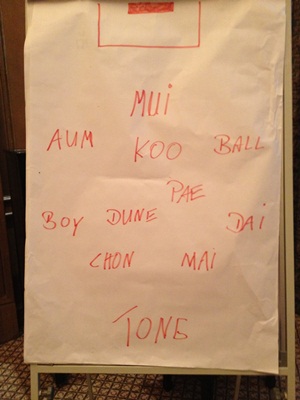 MUi
AUM KOO BALL
PAE
BOY DUNE DAi
CHON MAi
TONG